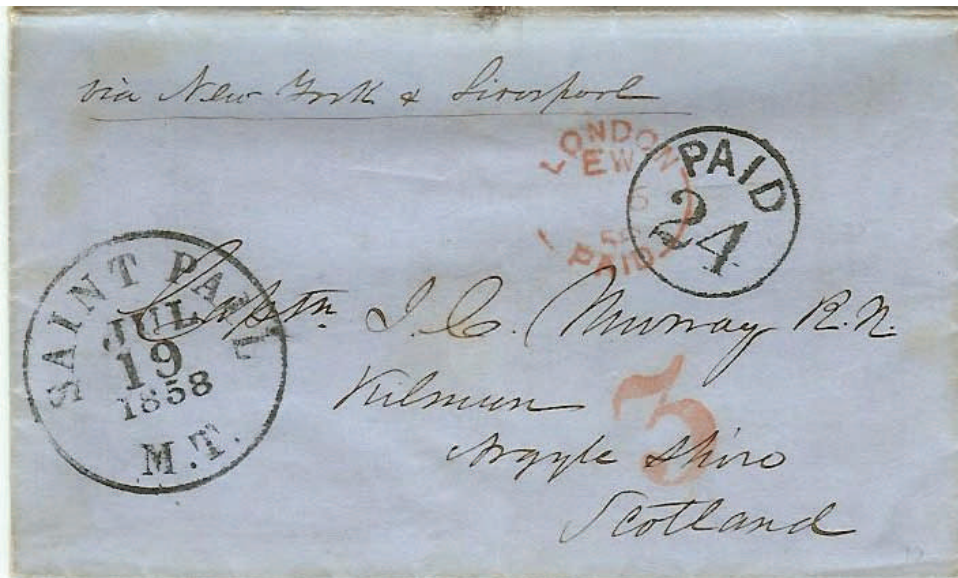 via New York & Liverpool
LONDON
EW
PAID
PAID
24
SAINT PAUL
JUL
19
1858
M.T.
Captn. J. C. Murray R.N.
Kilmun
Argyle Shire
Scotland
3